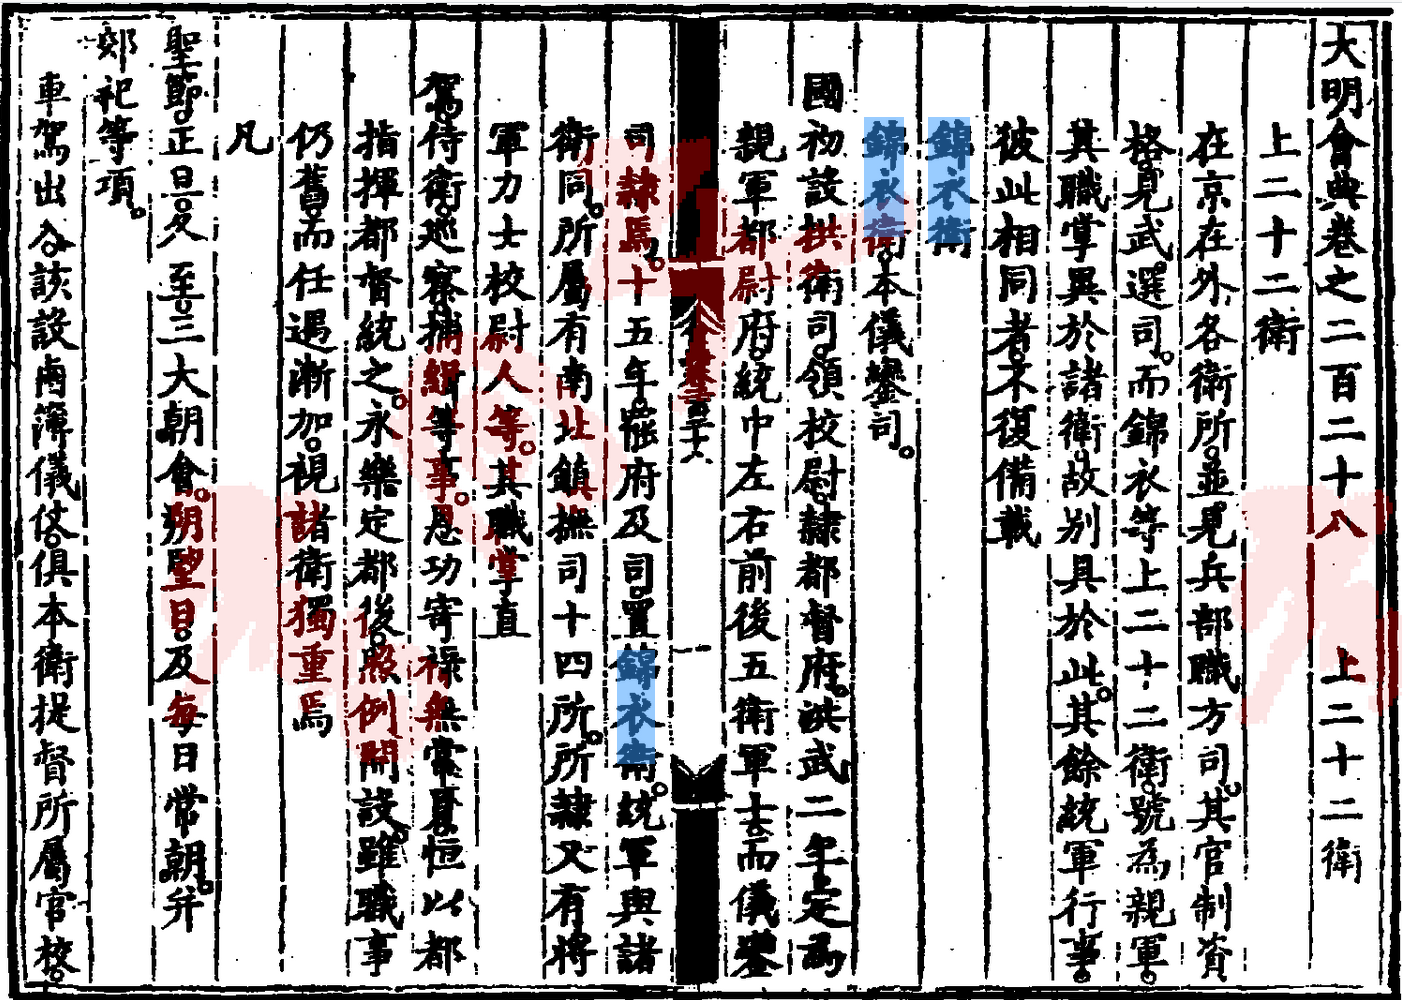 大明會典卷之二百二十八 上二十二衛
上二十二衛
在京在外各衛所。並見兵部職方司。其官制資
格。見武選司。而錦衣等上二十二衛。號為親軍。
其職掌異於諸衛。故别具於此。其餘統軍行事。
彼此相同者。不復備載
錦衣衛
錦衣衛。本儀鑾司。
國初設拱衛司。領校尉。隷都督府。洪武二年。定為
親軍都尉府。統中左右前後五衛軍士。而儀鑾
司隷焉。十五年。罷府及司。置錦衣衛。統軍與諸
衛同。所屬有南北鎮撫司十四所。所隷又有將
軍力士校尉人等。其職掌直
駕侍衛。巡察捕緝等事。恩功寄祿無常員。恒以都
指揮都督統之。永樂定都後。照例開設。雖職事
仍舊。而任遇漸加。視諸衛獨重焉
凡
聖節。正旦。冬至。三大朝會。朔望日。及每日常朝。并
郊祀等項。
車駕出入。該設鹵簿儀仗。俱本衛提督所屬官校。